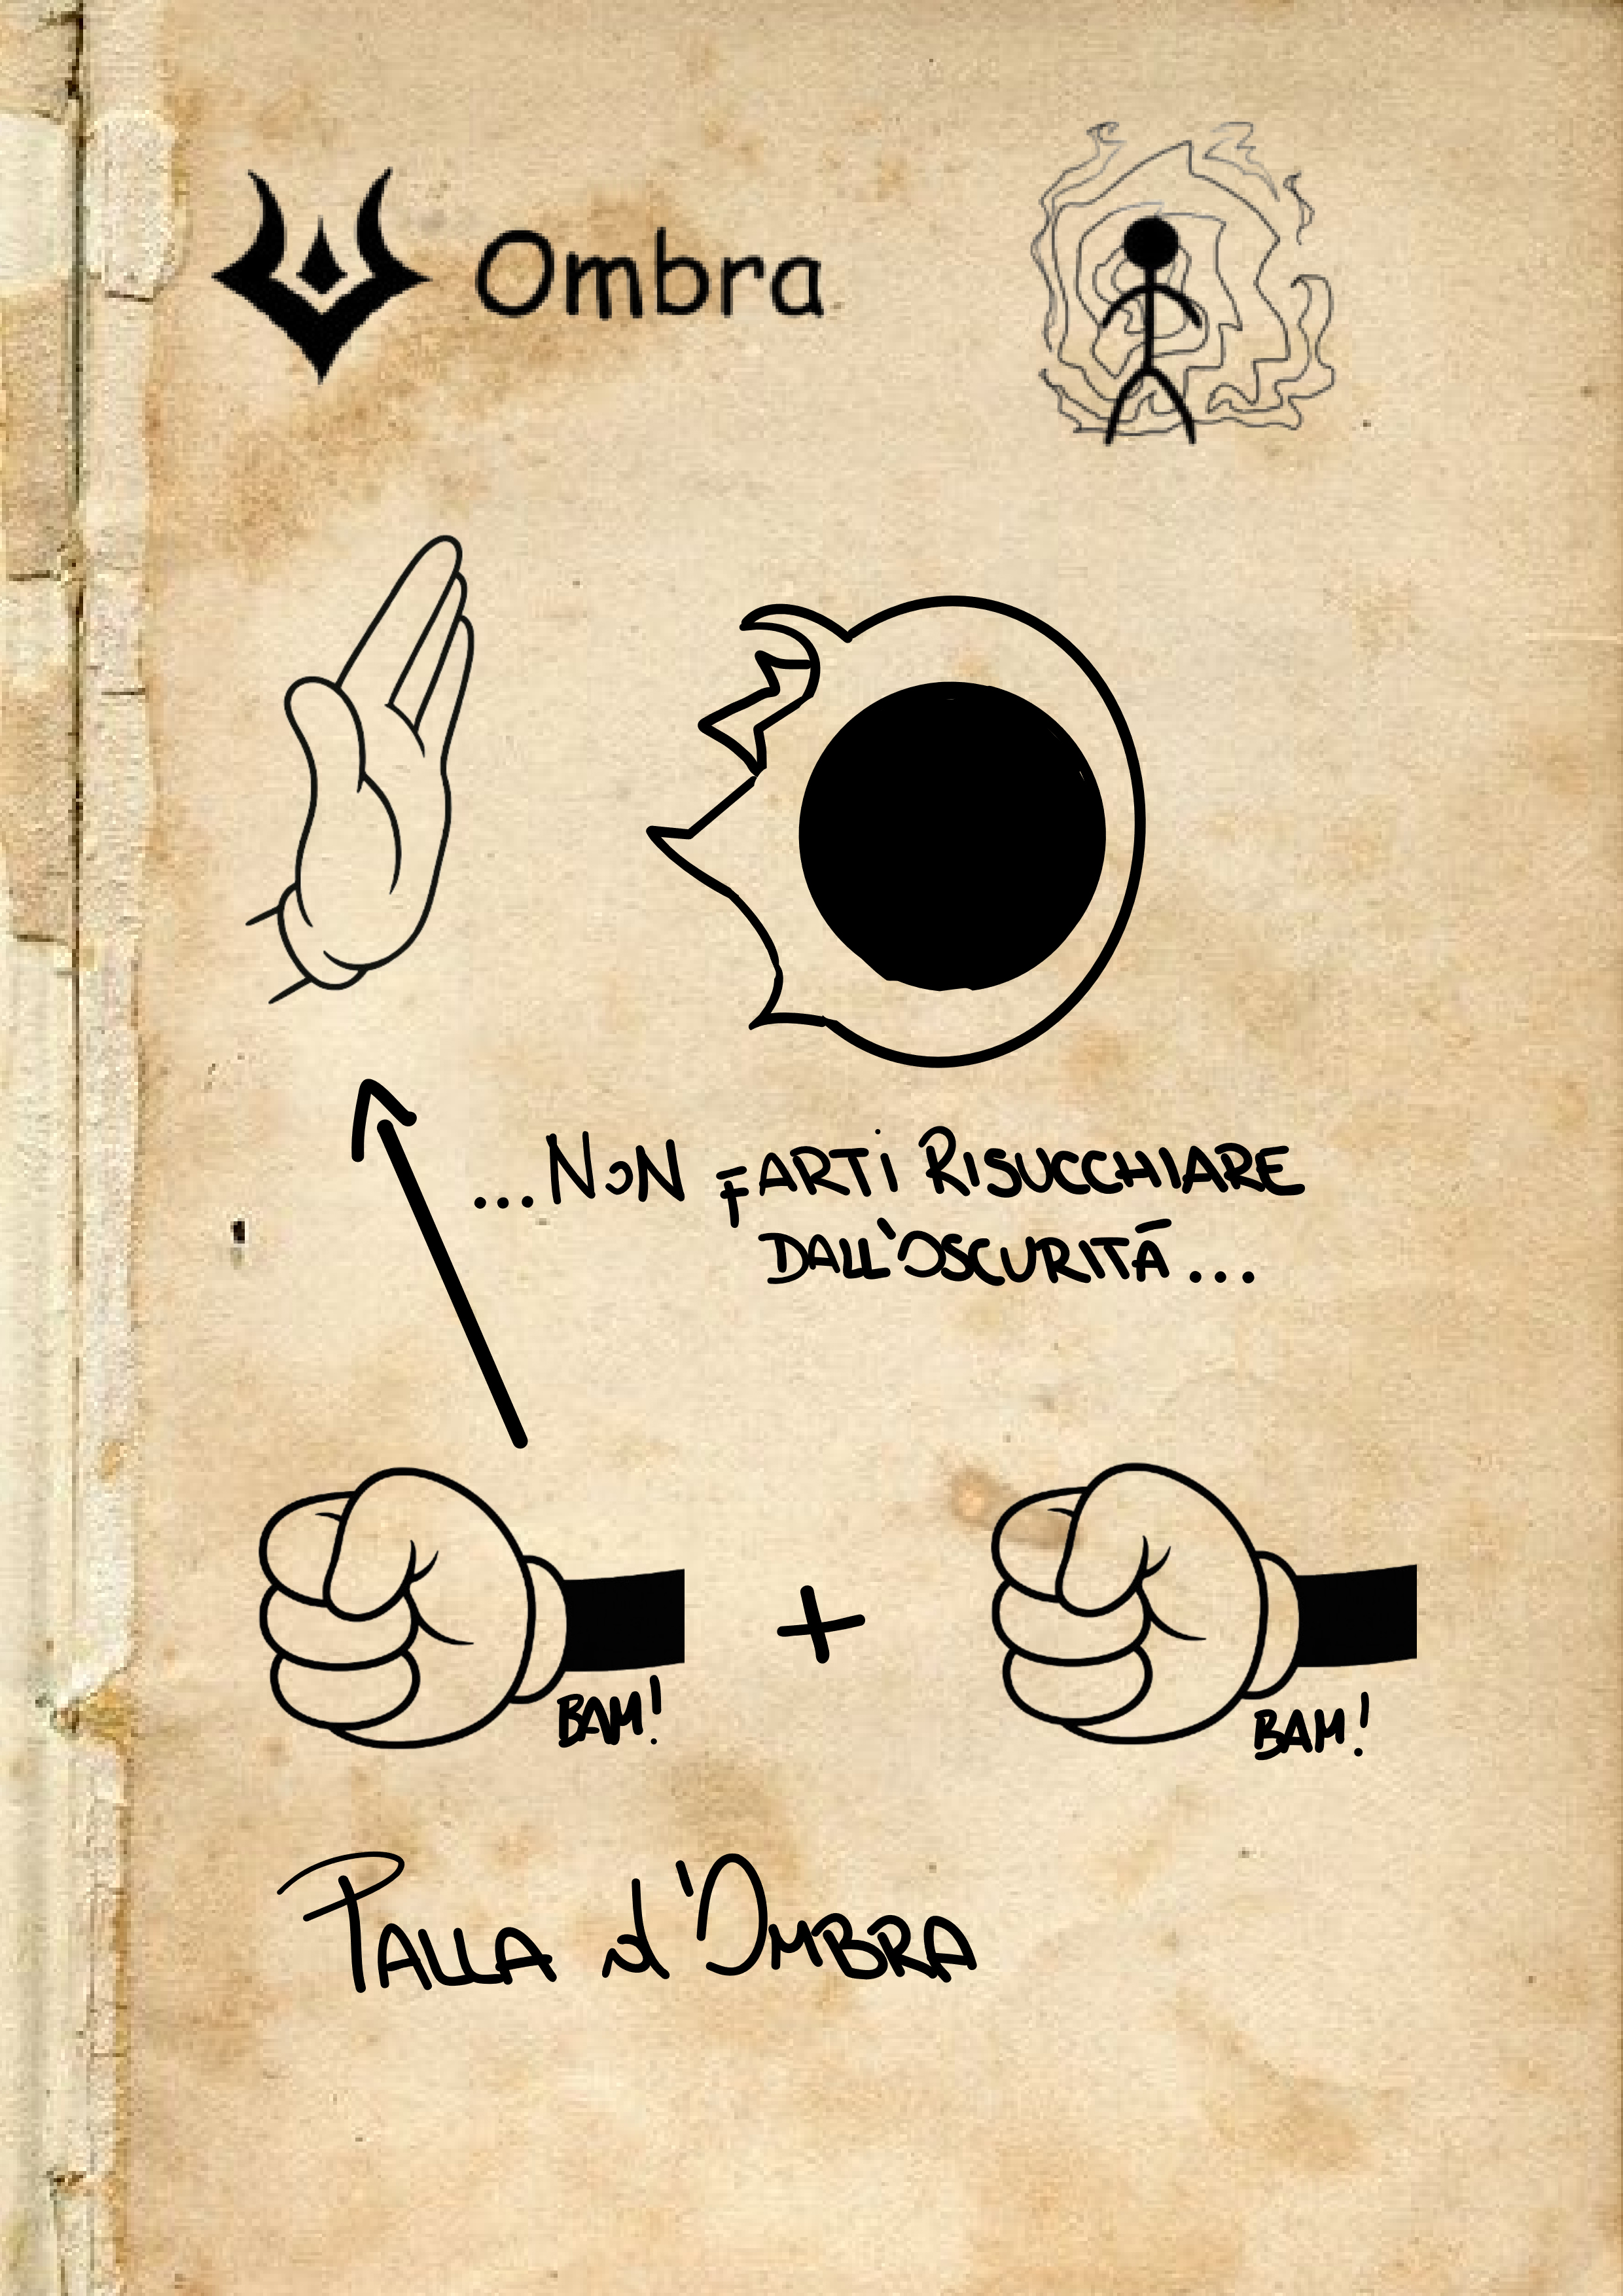 Ombra
...NON FARTI RISUCCHIARE
DALL'OSCURITÀ...
BAM!
+
BAM!
PALLA d'OMBRA